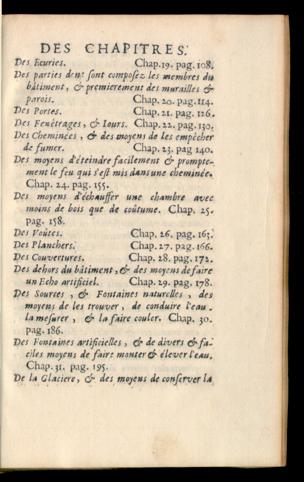 DES CHAPITRES.
Des Ecuries. Chap. 19. pag. 108.
Des parties dont sont composez les membres du
bâtiment, & premierement des murailles &
parois. Chap. 20. pag. 114.
Des Portes. Chap. 21. pag. 126.
Des Fenêtrages, & Iours. Chap. 22. pag. 130.
Des Cheminées, & des moyens de les empêcher
de fumer. Chap. 23. pag 140.
Des moyens d'éteindre facilement & prompte-
ment le feu qui s'est mis dans une cheminée.
Chap. 24. pag. 155.
Des moyens d'échauffer une chambre avec
moins de bois que de coûtume. Chap. 25.
pag. 158.
Des Voûtes. Chap. 26. pag. 163.
Des Planchers. Chap. 27. pag. 166.
Des Couvertures. Chap. 28. pag. 172.
Des dehors du bâtiment, & des moyens de faire
un Echo artificiel. Chap. 29. pag. 178.
Des Sources, & Fontaines naturelles, des
moyens de les trouver, de conduire l'eau,
la mesurer, & la faire couler. Chap. 30.
pag. 186.
Des Fontaines artificielles, & de divers & fa-
ciles moyens de faire monter & élever l'eau.
Chap. 31. pag. 195.
De la Glaciere, & des moyens de conserver la